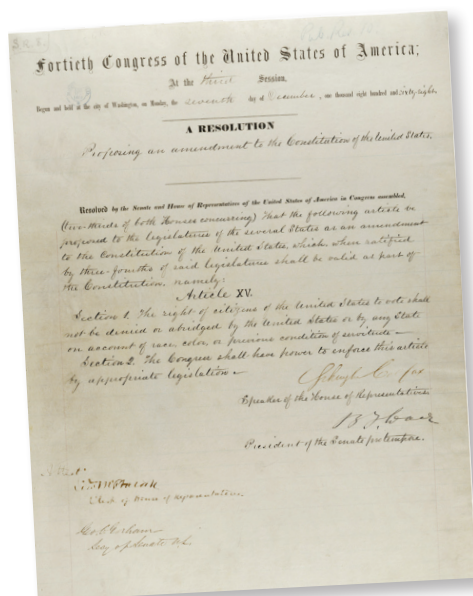 Fortieth Congress of the United States of America;
At the third Session,
Begun and held at the city of Washington, on Monday, the seventh day of December, one thousand eight hundred and sixty-eight.
A RESOLUTION
Proposing an amendment to the Constitution of the United States.
Resolved by the Senate and House of Representatives of the United States of America in Congress assembled,
(two-thirds of both Houses concurring) That the following article be
proposed to the legislatures of the several States as an amendment
to the Constitution of the United States, which, when ratified
by three-fourths of said legislatures shall be valid as part of
the Constitution, namely:
Article XV.
Section 1. The right of citizens of the United States to vote shall
not be denied or abridged by the United States or by any State
on account of race, color, or previous condition of servitude—
Section 2. The Congress shall have power to enforce this article
by appropriate legislation—
Speaker of the House of Representatives
President of the Senate pro tempore.
Attest:
Clerk of House of Representatives.
Geo C Gorham
Secy of Senate U.S.